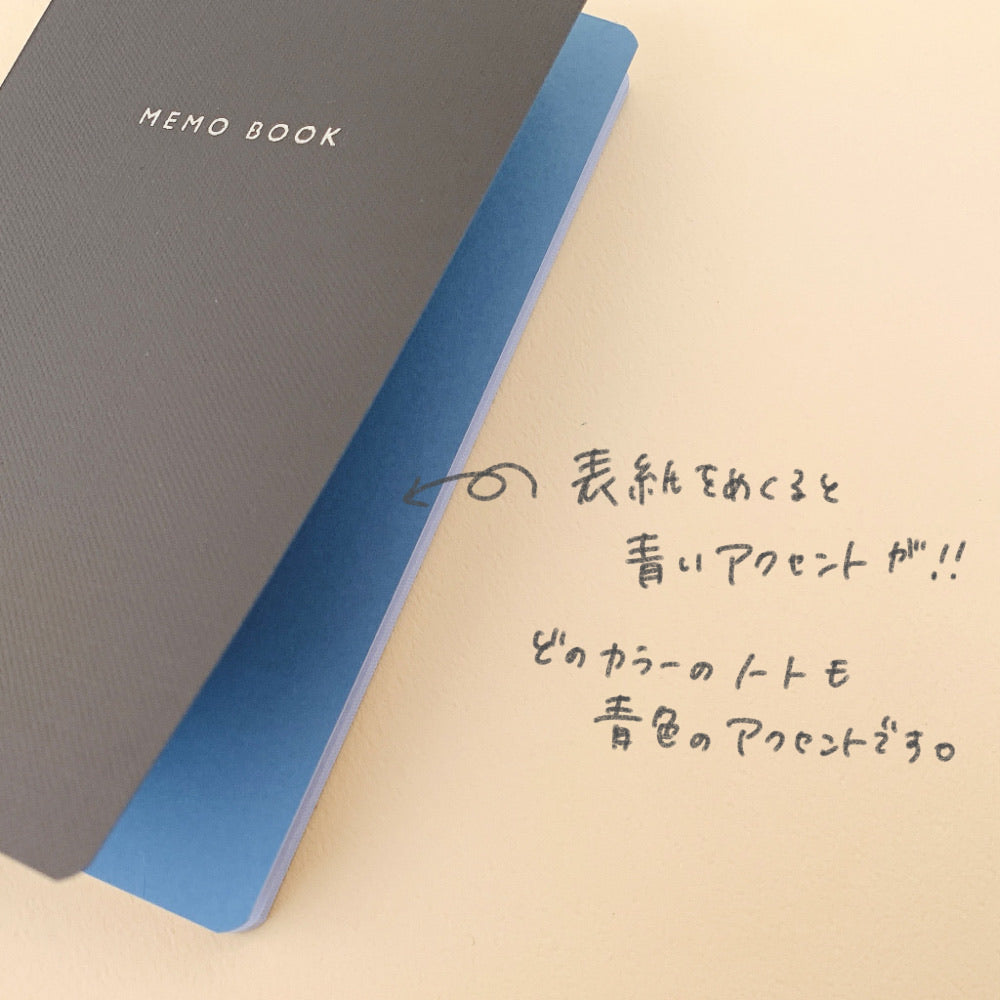 MEMO BOOK
表紙をめくると
青いアクセントが!!
どのカラーのノートも
青色のアクセントです。